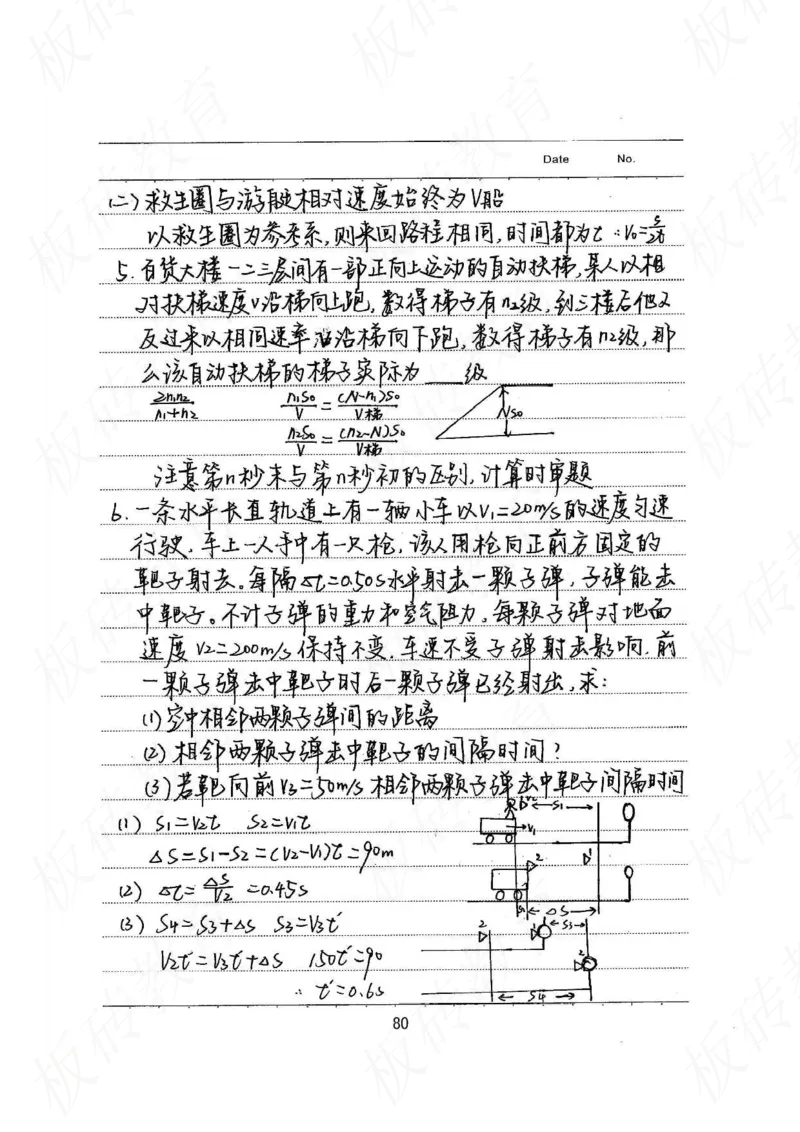 Date No.
(二)救生圈与游艇相对速度始终为V船
以救生圈为参考系,则来回路程相同,时间都为t ∴V₀=S/2t
5.百货大楼一二三层间有一部正向上运动的自动扶梯,某人以相
对扶梯速度v沿梯向上跑,数得梯子有n₂级,到三楼后他又
反过来以相同速率 沿梯向下跑,数得梯子有n₂级,那
么该自动扶梯的梯子实际为____级
2n₁n₂/n₁+n₂ n₁S₀/V=(N-n₁)S₀/V梯 NS₀
n₂S₀/V=(n₂-N)S₀/V梯
注意第n秒末与第n秒初的区别,计算时审题
6.一条水平长直轨道上有一辆小车以V₁=20m/s的速度匀速
行驶.车上一人手中有一只枪,该人用枪向正前方固定的
靶子射击。每隔Δt=0.50s水平射击一颗子弹,子弹能击
中靶子。不计子弹的重力和空气阻力,每颗子弹对地面
速度V2=200m/s保持不变.车速不受子弹射击影响.前
一颗子弹击中靶子时后一颗子弹已经射出,求:
(1)空中相邻两颗子弹间的距离
(2)相邻两颗子弹击中靶子的间隔时间?
(3)若靶向前V₃=50m/s相邻两颗子弹击中靶子间隔时间
(1) S₁=V₂t S₂=V₁t S₁ V₁
ΔS=S₁-S₂=(V₂-V₁)t=90m 2 1
(2) Δt=ΔS/V₂=0.45s ΔS
(3) S₄=S₃+ΔS S₃=V₃t' 2 1 S₃
V₂t'=V₃t'+ΔS 150t'=90 2
∴t'=0.6s S4
80
板砖教育